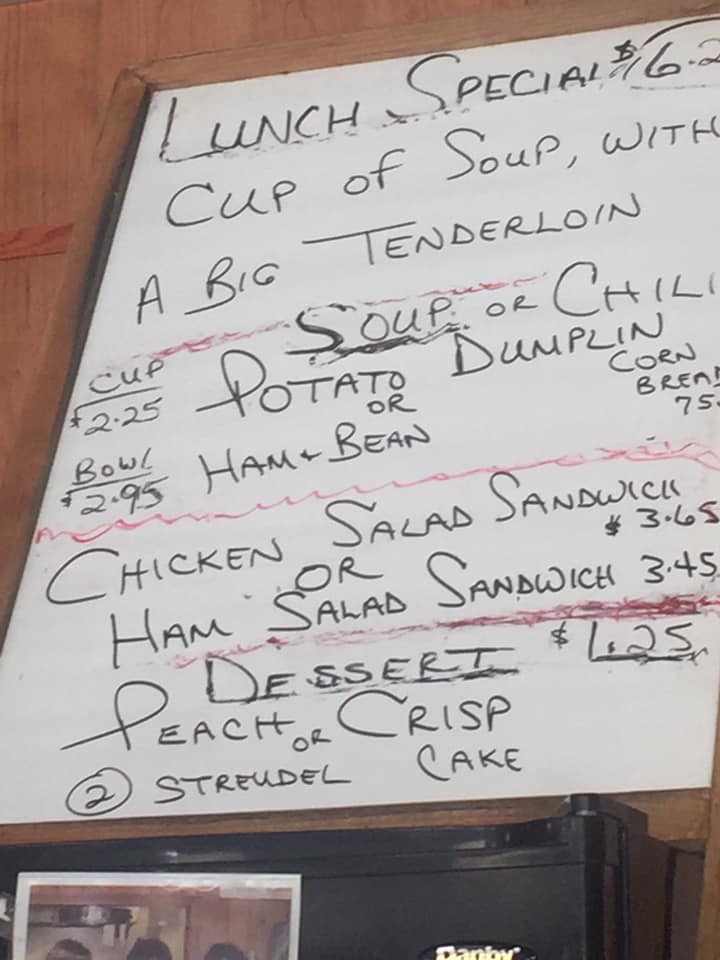 LUNCH SPECIAL $6.2
CUP OF SOUP, WITH
A BIG TENDERLOIN
SOUP OR CHILI
CUP $2.25 POTATO DUMPLIN
OR
CORN BREA
75
BOWL $2.95 HAM & BEAN
CHICKEN SALAD SANDWICH
$3.65
OR
HAM SALAD SANDWICH 3.45
DESSERT $1.25
PEACH OR CRISP
② STREUDEL CAKE
Danby